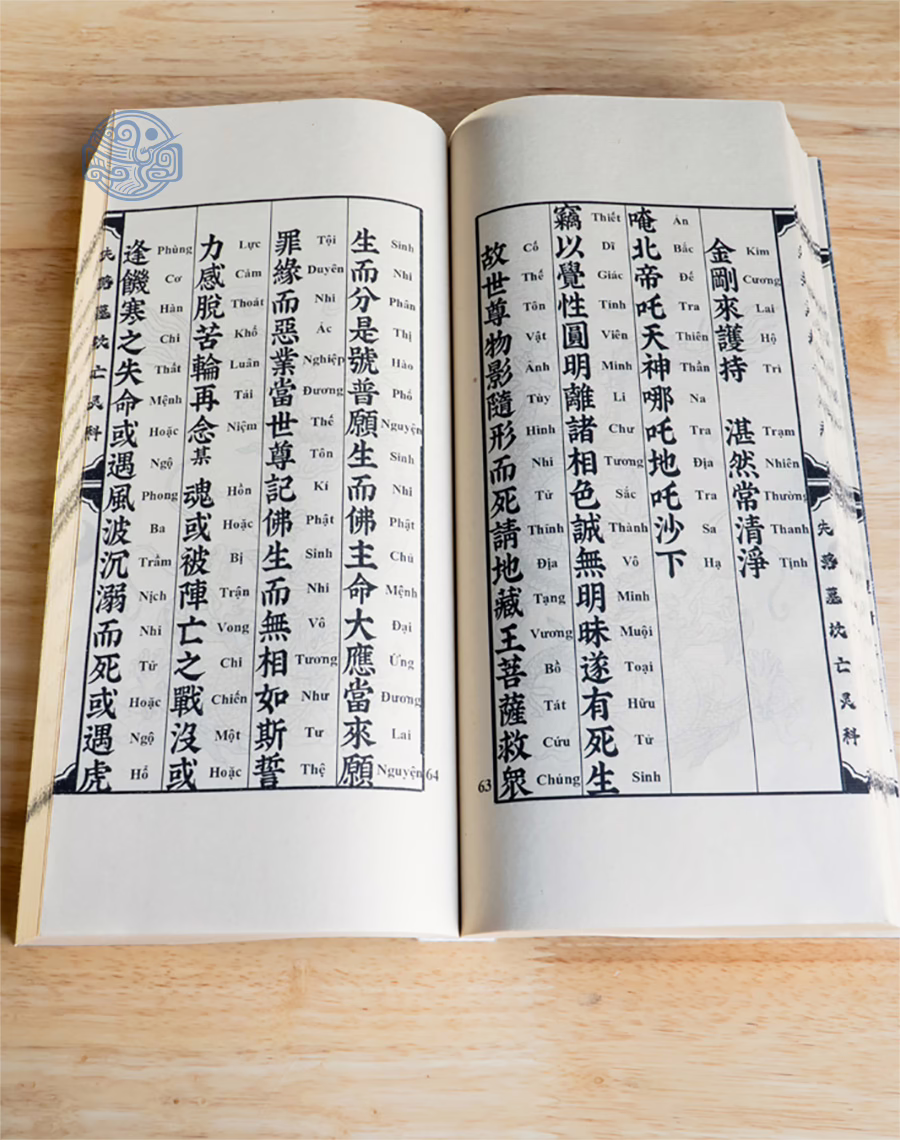 金剛來護持 湛然常清淨
Kim Cương Lai Hộ Trì Trạm Nhiên Thường Thanh Tịnh
唵北帝吒天神哪吒地吒沙下
Án Bắc Đế Tra Thiên Thần Na Tra Địa Tra Sa Hạ
竊以覺性圓明離諸相色誠無明昧遂有死生
Thiết Dĩ Giác Tính Viên Minh Li Chư Tương Sắc Thành Vô Minh Muội Toại Hữu Tử Sinh
故世尊物影隨形而死請地藏王菩薩救衆
Cố Thế Tôn Vật Ảnh Tùy Hình Nhi Tử Thỉnh Địa Tạng Vương Bồ Tát Cứu Chúng
63
生而分是號普願生而佛主命大應當來願
Sinh Nhi Phân Thị Hào Phổ Nguyện Sinh Nhi Phật Chủ Mệnh Đại Ứng Đương Lai Nguyện
罪緣而惡業當世尊記佛生而無相如斯誓
Tội Duyên Nhi Ác Nghiệp Đương Thế Tôn Kí Phật Sinh Nhi Vô Tương Như Tư Thệ
力感脫苦輪再念某 魂或被陣亡之戰沒或
Lực Cảm Thoát Khổ Luân Tái Niệm Hồn Hoặc Bị Trận Vong Chi Chiến Một Hoặc
逢饑寒之失命或遇風波沉溺而死或遇虎
Phùng Cơ Hàn Chi Thất Mệnh Hoặc Ngộ Phong Ba Trầm Nịch Nhi Tử Hoặc Ngộ Hổ
64